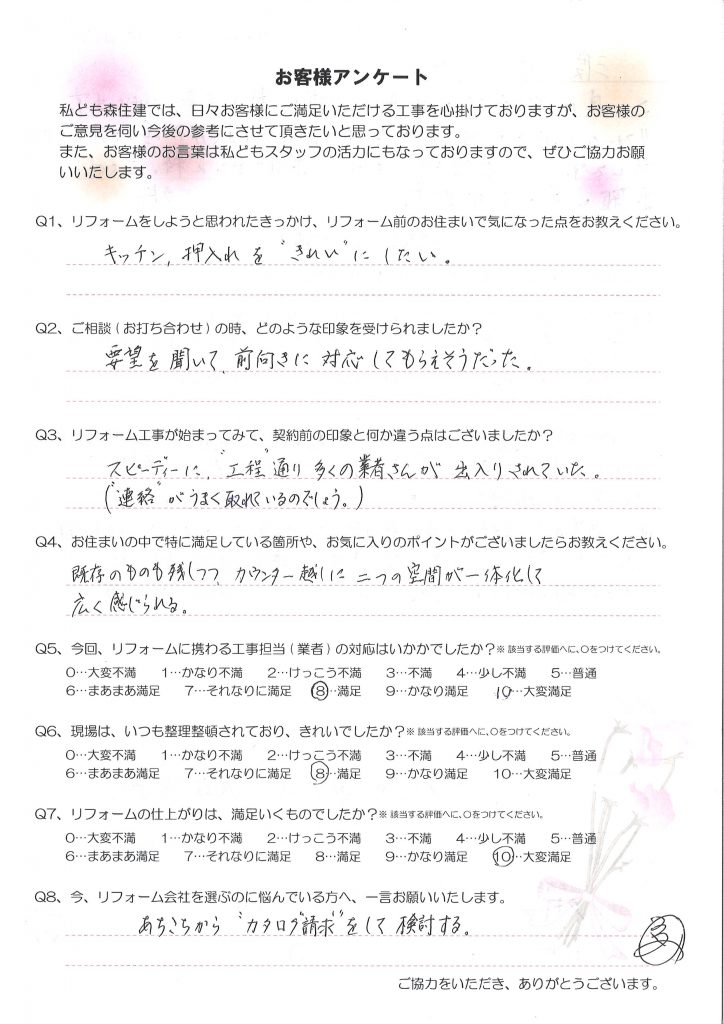 お客様アンケート
私ども森住建では、日々お客様にご満足いただける工事を心掛けておりますが、お客様の
ご意見を伺い今後の参考にさせて頂きたいと思っております。
また、お客様のお言葉は私どもスタッフの活力にもなっておりますので、ぜひご協力お願
いいたします。
Q1、リフォームをしようと思われたきっかけ、リフォーム前のお住まいで気になった点をお教えください。
キッチン, 押入れを"きれい"にしたい。
Q2、ご相談(お打ち合わせ)の時、どのような印象を受けられましたか?
要望を聞いて、前向きに対応してもらえそうだった。
Q3、リフォーム工事が始まってみて、契約前の印象と何か違う点はございましたか?
スピーディーに, "工程"通り多くの業者さんが出入りされていた。
("連絡"がうまく取れているのでしょう。)
Q4、お住まいの中で特に満足している箇所や、お気に入りのポイントがございましたらお教えください。
既存のものも残しつつ、カウンター越しに二つの空間が一体化して
広く感じられる。
Q5、今回、リフォームに携わる工事担当(業者)の対応はいかかでしたか?※該当する評価へに、○をつけてください。
0…大変不満 1…かなり不満 2…けっこう不満 3…不満 4…少し不満 5…普通
6…まあまあ満足 7…それなりに満足 8…満足 9…かなり満足 10…大変満足
Q6、現場は、いつも整理整頓されており、きれいでしたか?※該当する評価へに、○をつけてください。
0…大変不満 1…かなり不満 2…けっこう不満 3…不満 4…少し不満 5…普通
6…まあまあ満足 7…それなりに満足 8…満足 9…かなり満足 10…大変満足
Q7、リフォームの仕上がりは、満足いくものでしたか?※該当する評価へに、○をつけてください。
0…大変不満 1…かなり不満 2…けっこう不満 3…不満 4…少し不満 5…普通
6…まあまあ満足 7…それなりに満足 8…満足 9…かなり満足 10…大変満足
Q8、今、リフォーム会社を選ぶのに悩んでいる方へ、一言お願いいたします。
あちこちから"カタログ請求"をして検討する。
ご協力をいただき、ありがとうございます。